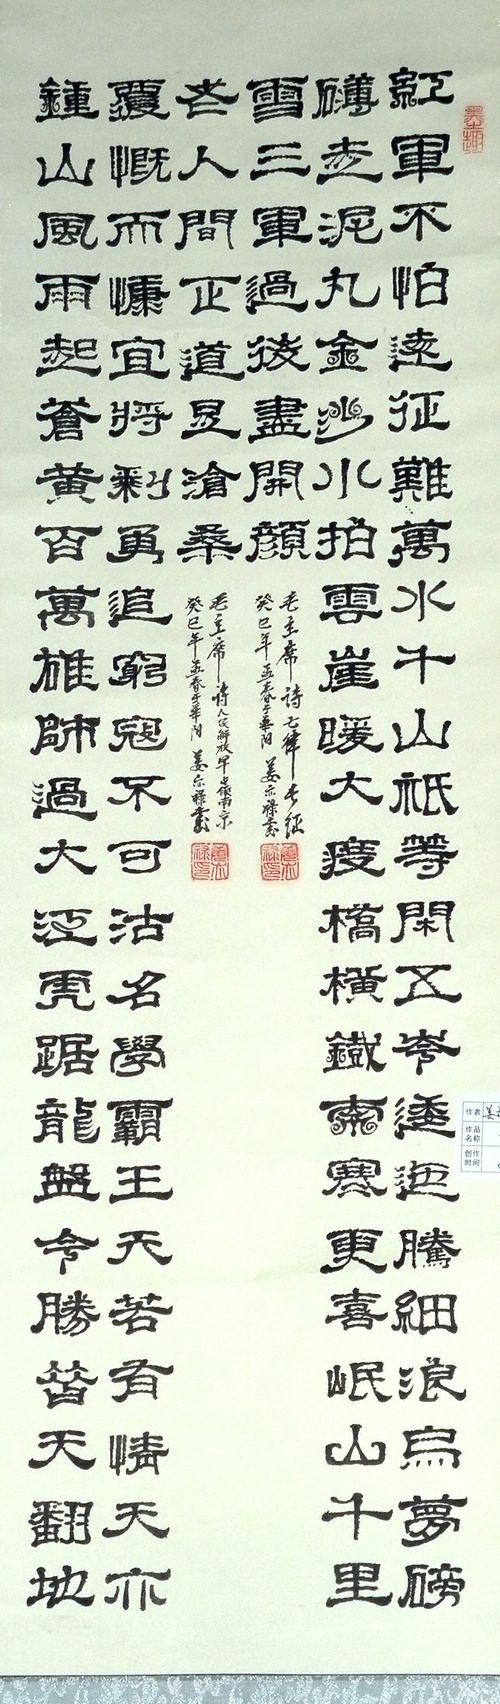 墨趣
紅軍不怕遠征難萬水千山祇等閑五岺逶迤騰細浪烏夢磅
礴走泥丸金沙水拍雲崖暖大渡橋橫鐵索寒更喜岷山千里
雪三軍過後盡開顏
毛主席詩七律長征
癸巳年孟春于華陽 姜宗祿書
鍾山風雨起蒼黃百萬雄師過大江虎踞龍盤今勝昔天翻地
覆慨而慷宜將剩勇追窮寇不可沽名學霸王天若有情天亦
老人間正道昰滄桑
毛主席詩人民解放軍占領南京
癸巳年孟春于華陽 姜宗祿書
作者 姜
作品名称
创作时间